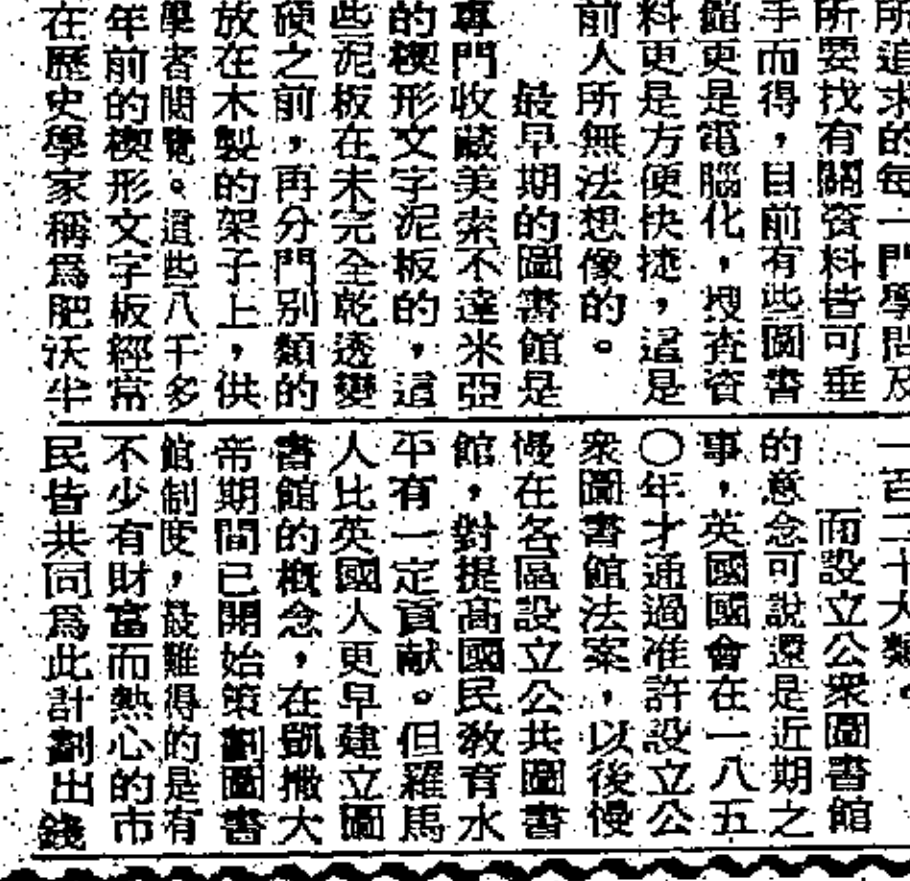 所追求的每一門學問及
所要找有關資料皆可垂
手而得，目前有些圖書
館更是電腦化，搜查資
料更是方便快捷，這是
前人所無法想像的。
最早期的圖書館是
專門收藏美索不達米亞
的楔形文字泥板的，這
些泥板在未完全乾透變
硬之前，再分門別類的
放在木製的架子上，供
學者閱覽。這些八千多
年前的楔形文字板經常
在歷史學家稱爲肥沃半
一百二十大類。
而設立公衆圖書館
的意念可說還是近期之
事，英國國會在一八五
〇年才通過准許設立公
衆圖書館法案，以後慢
慢在各區設立公共圖書
館，對提高國民教育水
平有一定貢献。但羅馬
人比英國人更早建立圖
書館的概念，在凱撒大
帝期間已開始策劃圖書
館制度，最難得的是有
不少有財富而熱心的市
民皆共同爲此計劃出錢